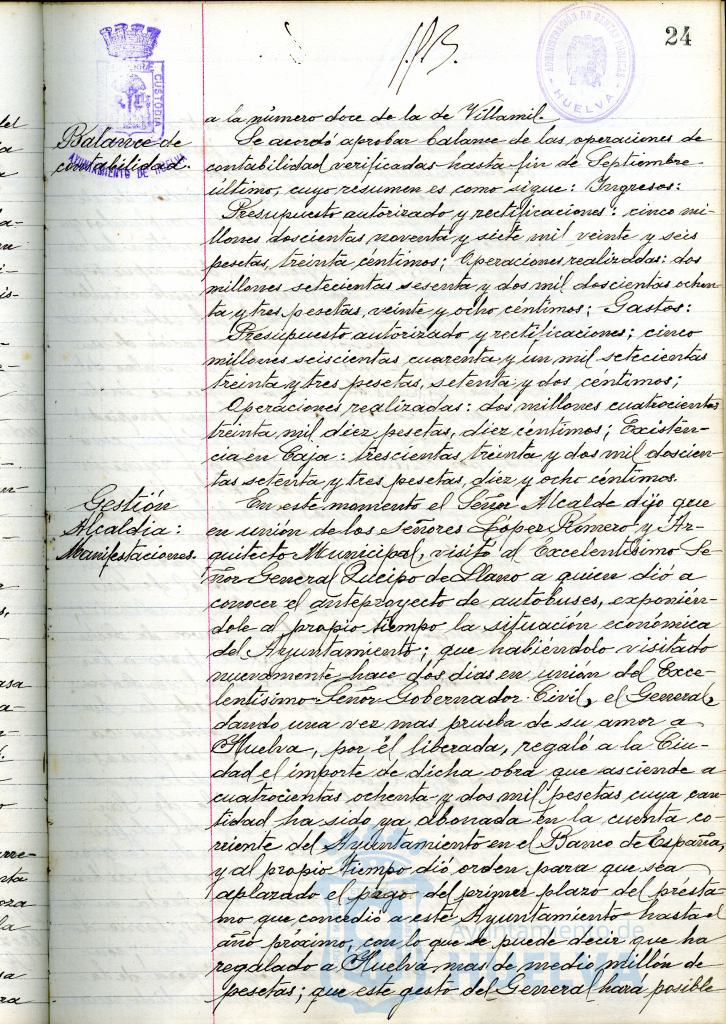 24
ADMINISTRACIÓN DE RENTAS PÚBLICAS
HUELVA
CUSTODIA
AYUNTAMIENTO DE HUELVA
a la número doce de la de Villamil.
Balance de
contabilidad.
Se acordó aprobar balance de las operaciones de
contabilidad verificadas hasta fin de Septiembre
último, cuyo resumen es como sigue: Ingresos:
Presupuesto autorizado y rectificaciones: cinco mi-
llones doscientas noventa y siete mil veinte y seis
pesetas, treinta céntimos; Operaciones realizadas: dos
millones setecientas sesenta y dos mil doscientas ochen-
ta y tres pesetas, veinte y ocho céntimos; Gastos:
Presupuesto autorizado y rectificaciones; cinco
millones seiscientas cuarenta y un mil setecientas
treinta y tres pesetas, setenta y dos céntimos;
Operaciones realizadas: dos millones cuatrocientas
treinta mil diez pesetas, diez céntimos; Existen-
cia en Caja: trescientas treinta y dos mil doscien-
tas setenta y tres pesetas, diez y ocho céntimos.
Gestión
Alcaldía:
Manifestaciones.
En este momento el Señor Alcalde dijo que
en unión de los Señores López Romero y Ar-
quitecto Municipal, visitó al Excelentísimo Se-
ñor General Queipo de Llano a quien dió a
conocer el anteproyecto de autobuses, exponién-
dole al propio tiempo la situación económica
del Ayuntamiento; que habiéndolo visitado
nuevamente hace dos dias en unión del Exce-
lentísimo Señor Gobernador Civil, el General,
dando una vez mas prueba de su amor a
Huelva, por él liberada, regaló a la Ciu-
dad el importe de dicha obra que asciende a
cuatrocientas ochenta y dos mil pesetas cuya can-
tidad ha sido ya abonada en la cuenta co-
rriente del Ayuntamiento en el Banco de España,
y al propio tiempo dió orden para que sea
aplazado el pago del primer plazo del présta-
mo que concedió a este Ayuntamiento hasta el
año próximo, con lo que se puede decir que ha
regalado a Huelva mas de medio millón de
pesetas; que este gesto del General hará posible
Ayuntamiento de
HUELVA